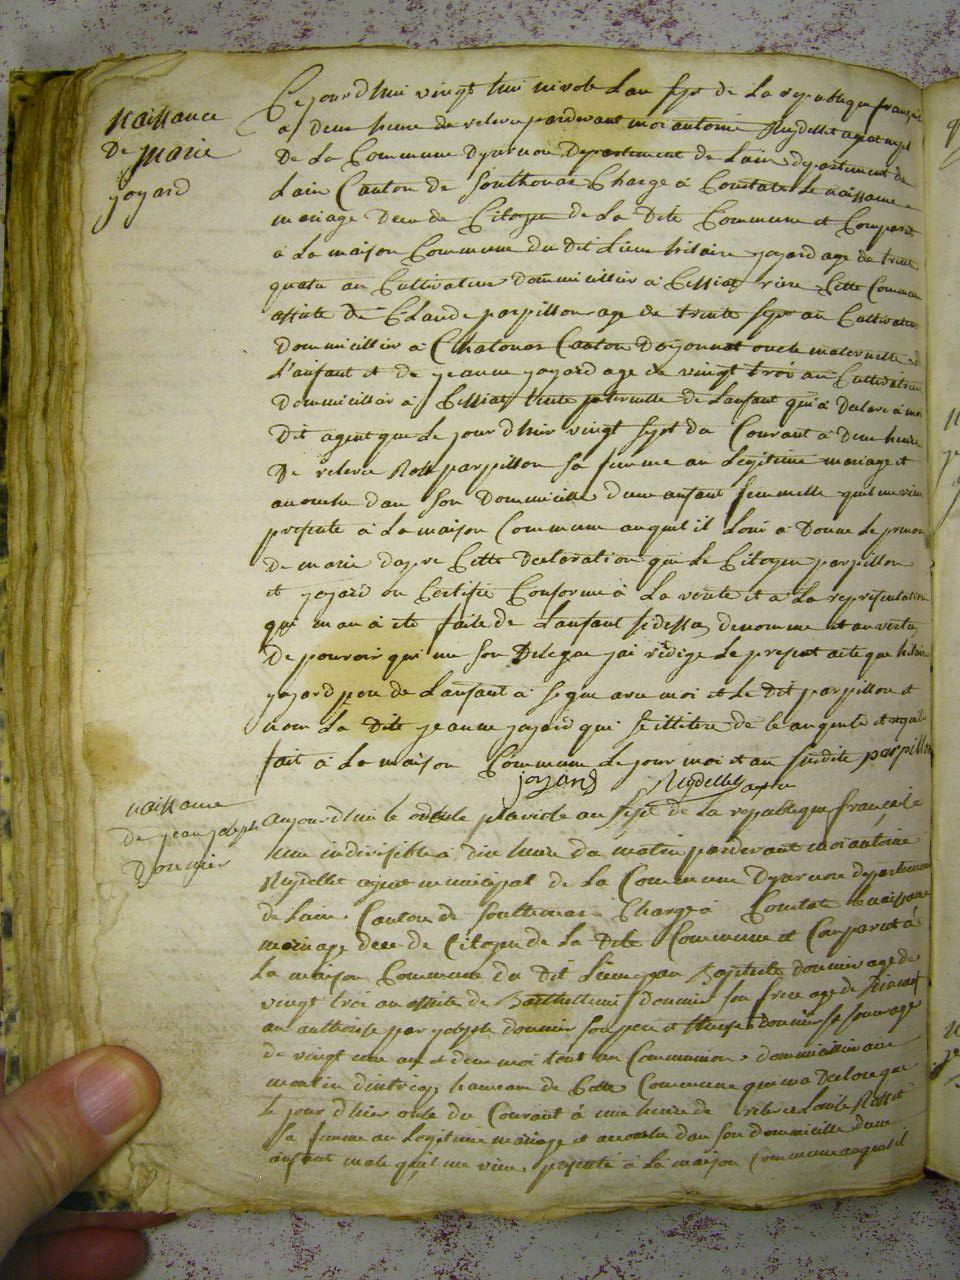 Naissance
De Marie
joyard
Cejourdhui vingt hui nivose Lan sept de La republique français
a deux heure du releve pardevant moi antoine Reydellet agent mpl
De La Commune Dyzernou Departement de Lain departement de
Lain Canton de Southonax Charge a Constate Le naissance
mariage dece de Citoyen de La Dite Commune et Comparut
a La maison Commune du Dit Lieu hilaire joyard age de trente
quatre an Cultivateur Dommicillier a Cessiat rière Cette Commune
assiste de Claude parpillon age de trente sept an Cultivateur
Dommicillier a Chatonax Canton Doyonnax oncle maternelle de
L'anfant et de jeanne joyard age de vingt troi an Cultivatrice
Dommicillier a Cessiat tente paternelle de Lanfant qui a Declare a moi
Dit agent que Le jour dhier vingt sept du Courant a deux heure
De releve Rose parpillon sa femme an Legitime mariage et
acouche dan son Dommicille dune anfant femmelle quil me vien
presenté a La maison Commune auquel il Loui a Donne Le prenon
de marie dapre Cette Declaration que Le Citoyen parpillon
et joyard on Certifie Conforme a La verite et a La representation
qui man a ete faite de Lanfant sidessu denomme et an vertu
De pouvoir qui me son Delegue jai redige Le present acte que hilaire
joyard pere de Lanfant a signe avec moi et Le Dit parpillon et
non La Dite jeanne joyard qui seillitere de le anquile et requi
fait a La maison Commune Le jour moi et an susdite parpillon
joyard Reydellet agent
naissance
de jean joseph
Dounier
aujourdhui le douze pluviose an sept de La republique française
une indivisible a dix heure du matin pardevant moi antoine
Reydellet agent municipal de La Commune Dyzernou departement
de Lain Canton de Southonax Charge a Constate Le naissance
mariage dece de Citoyen de La Dite Commune et Comparut a
La maison Commune du Dit Lieu jean Baptiste dounier age de
vingt troi an assiste de Barthellemi dounier son frere age de
an authorise par joseph dounier son pere et therese dounier sa soeur age
de vingt une an et deux moi tout an Communion dommicillier au
moulin hameau de Cette Commune qui ma Declare que
le jour dhier onze du Courant a une heure de releve Louise Rosset
sa femme an Legitime mariage et acouche dan son dommicille dune
anfant male quil me vien presenté a La maison Commune auquel il